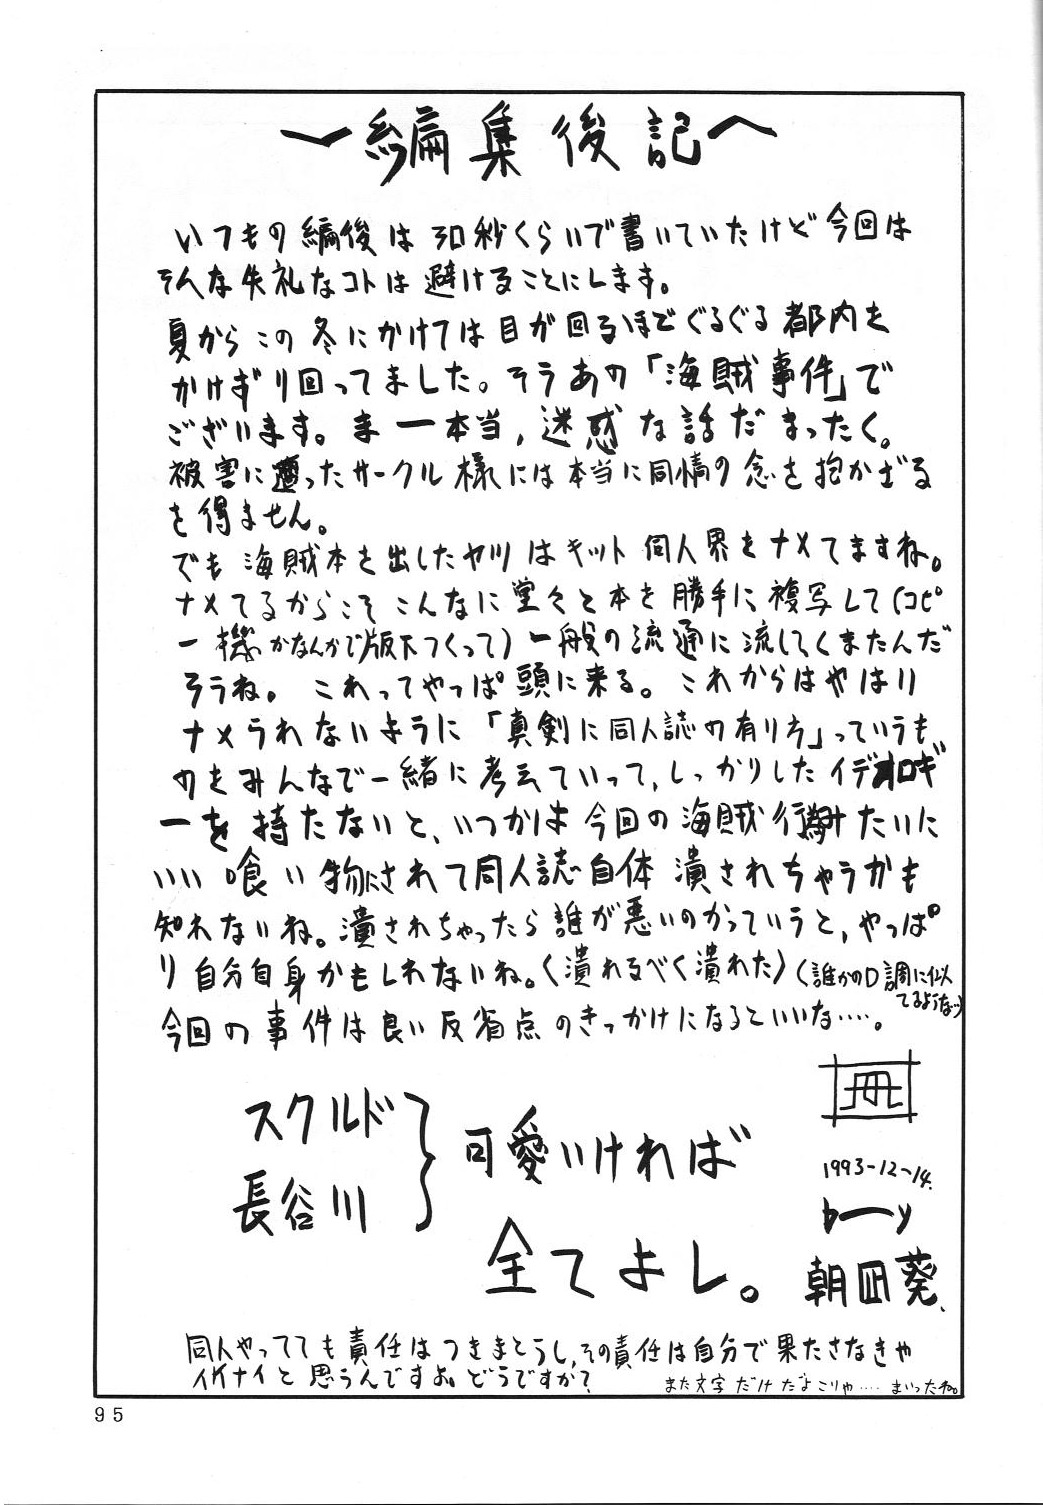 〜編集後記〜
いつもの編後は30秒くらいで書いていたけど今回は
そんな失礼なコトは避けることにします。
夏からこの冬にかけては目が回るほどぐるぐる都内を
かけずり回ってました。そうあの「海賊事件」で
ございます。ま一本当,迷惑な話だまったく。
被害に遭ったサークル様には本当に同情の念を抱かざる
を得ません。
でも海賊本を出したヤツはキット同人界をナメてますね。
ナメてるからこそこんなに堂々と本を勝手に複写して(コピ
ー機かなんかで版下つくって)一般の流通に流してくまたんだ
そうね。これってやっぱ頭に来る。これからはやはり
ナメられないように「真剣に同人誌の有り方」っていうも
のをみんなで一緒に考えていって,しっかりしたイデオロギ
ーを持たないと、いつかは今回の海賊行為みたいに
いい喰い物にされて同人誌自体潰されちゃうかも
知れないね。潰されちゃったら誰が悪いのかっていうと,やっぱ
り自分自身かもしれないね。〈潰れるべく潰れた〉(誰かの口調に似
てるような)
今回の事件は良い反省点のきっかけになるといいな‥‥。
スクルド
長谷川
可愛いければ
全てよし。
1993-12-14.
by
朝凪葵.
同人やってても責任はつきまとうし,その責任は自分で果たさなきゃ
イケナイと思うんですよ。どうですか?
また文字だけだよこりゃ‥‥まいったね。
95